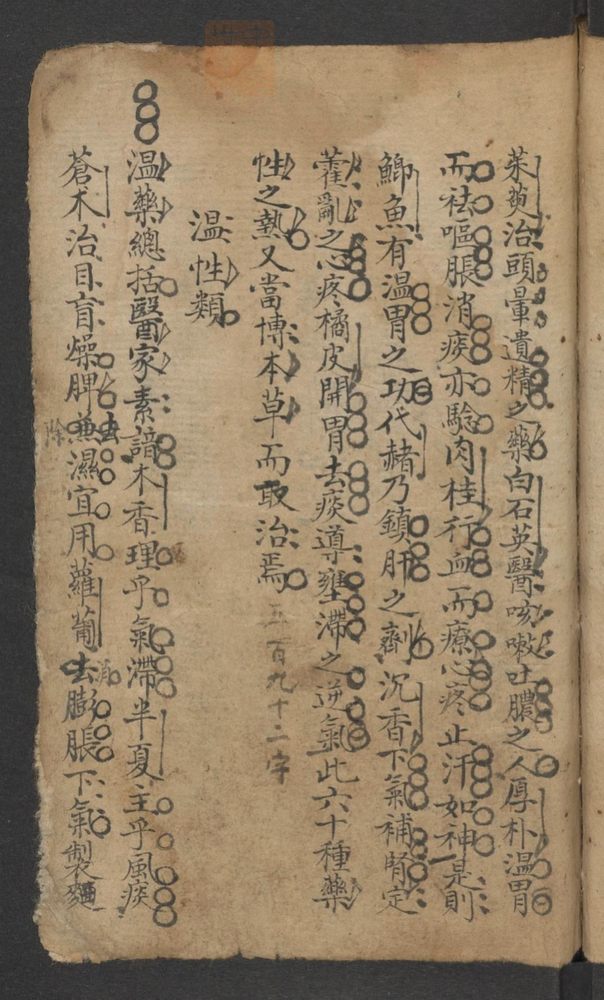 茱萸治頭暈遺精之藥白石英醫咳嗽吐膿之人厚朴温胃
而祛嘔脹消痰亦驗肉桂行血而療心疼止汗如神是則
鯽魚有温胃之功代赭乃鎮肝之劑沉香下氣補腎定
藿亂之心疼橘皮開胃去痰導壅滯之逆氣此六十種藥
性之熱又當博本草而取治焉 五百九十二字
温性類
温藥總括醫家素諳木香理乎氣滯半夏主乎風痰
蒼木治目盲燥脾去濕宜用蘿蔔去膨脹下氣製麵